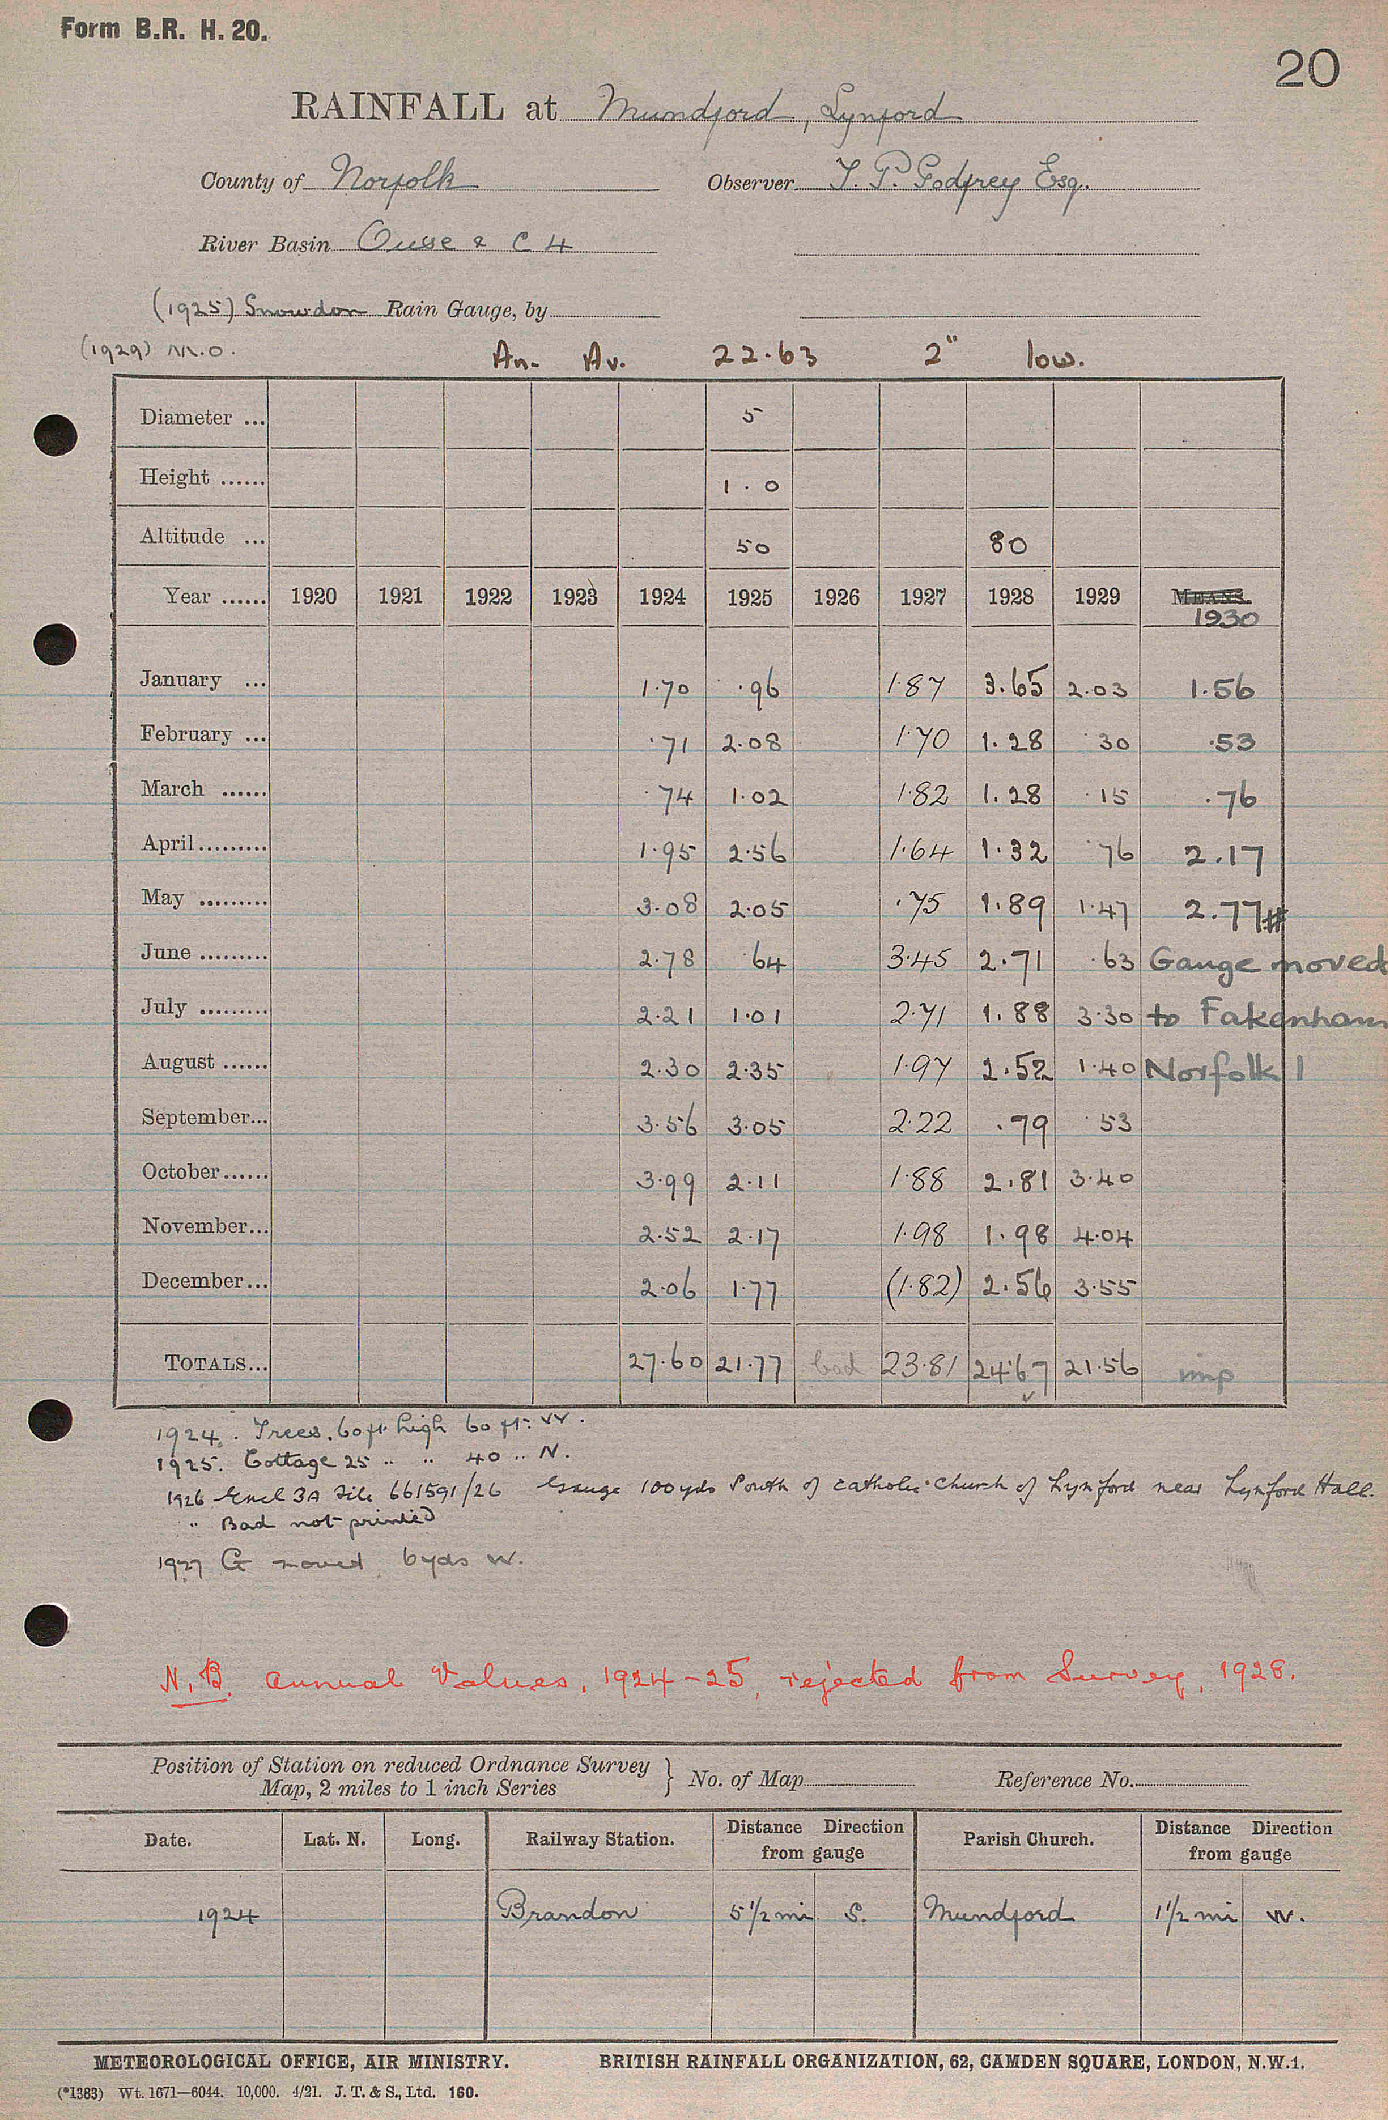 Form B.R. H. 20.
20
RAINFALL at Mundford, Lynford
County of Norfolk Observer T. P. Godfrey Esq.
River Basin Ouse & C 4
(1925) Snowdon Rain Gauge, by
(1929) M.O. An. Av. 22.63 2" low.
Diameter ... 5
Height ...... 1.0
Altitude ... 50 80
Year ...... 1920 1921 1922 1923 1924 1925 1926 1927 1928 1929 MEANS.
1930
January ... 1.70 .96 1.87 3.65 2.03 1.56
February ... .71 2.08 1.70 1.28 .30 .53
March ...... .74 1.02 1.82 1.28 .15 .76
April......... 1.95 2.56 1.64 1.32 .76 2.17
May ......... 3.08 2.05 .75 1.89 1.47 2.77#
June ......... 2.78 .64 3.45 2.71 .63 Gauge moved
July ......... 2.21 1.01 2.71 1.88 3.30 to Fakenham
August ...... 2.30 2.35 1.97 2.52 1.40 Norfolk 1
September... 3.56 3.05 2.22 .79 .53
October...... 3.99 2.11 1.88 2.81 3.40
November... 2.52 2.17 1.98 1.98 4.04
December... 2.06 1.77 (1.82) 2.56 3.55
TOTALS... 27.60 21.77 bad 23.81 24.67 21.56 imp
1924. Trees. 60 ft high 60 ft. W.
1925. Cottage 25 " " 40 " N.
1926 Encl 3A File 661591/26 Gauge 100 yds South of Catholic Church of Lynford near Lynford Hall.
" Bad not printed
1927 G moved 6 yds W.
N.B. Annual Values, 1924-25, rejected from Survey, 1928.
Position of Station on reduced Ordnance Survey
Map, 2 miles to 1 inch Series } No. of Map Reference No.
Date. Lat. N. Long. Railway Station. Distance Direction from gauge Parish Church. Distance Direction from gauge
1924 Brandon 5 1/2 mi S. Mundford 1 1/2 mi W.
METEOROLOGICAL OFFICE, AIR MINISTRY. BRITISH RAINFALL ORGANIZATION, 62, CAMDEN SQUARE, LONDON, N.W.1.
(*1383) Wt. 1671—6044. 10,000. 4/21. J. T. & S., Ltd. 160.